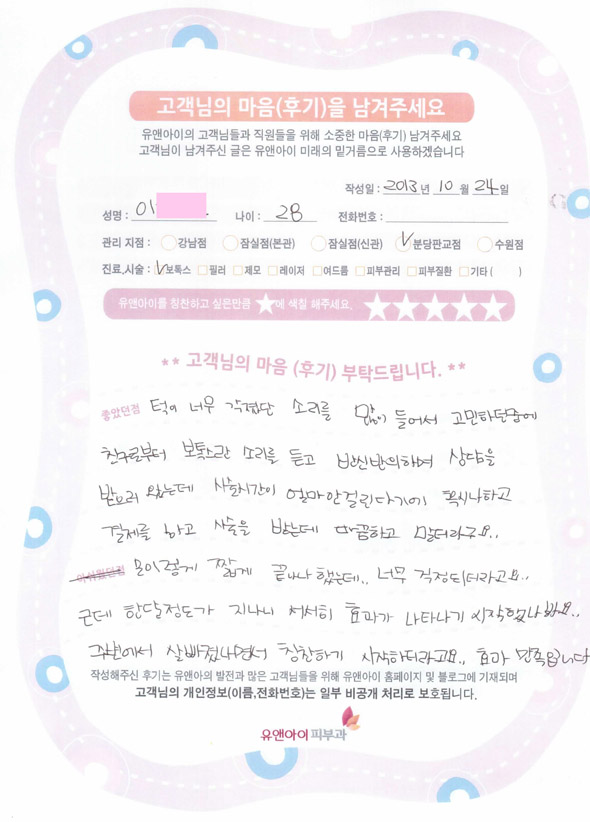 고객님의 마음(후기)을 남겨주세요
유앤아이의 고객님들과 직원들을 위해 소중한 마음(후기) 남겨주세요
고객님이 남겨주신 글은 유앤아이 미래의 밑거름으로 사용하겠습니다
작성일 : 2013 년 10 월 24 일
성명 : 이 나이 : 28 전화번호 :
관리 지점 : 강남점 잠실점(본관) 잠실점(신관) 분당판교점 수원점
진료,시술 : 보톡스 필러 제모 레이저 여드름 피부관리 피부질환 기타 ( )
유앤아이를 칭찬하고 싶은만큼 ★에 색칠 해주세요. ★★★★★
** 고객님의 마음 (후기) 부탁드립니다. **
좋았던점 턱이 너무 각졌단 소리를 많이 들어서 고민하던중에
친구로부터 보톡스란 소리를 듣고 반신반의하며 상담을
받으러 왔는데 시술시간이 얼마안걸린다기에 혹시나하고
결제를 하고 시술을 받는데 따끔하고 말더라구요..
아쉬웠던점 뭐이렇게 짧게 끝나나 했는데.. 너무 걱정되더라고요..
근데 한달정도가 지나니 서서히 효과가 나타나기 시작했나봐요..
주변에서 살빠졌냐면서 칭찬하기 시작하더라고요.. 효과 만족입니다
작성해주신 후기는 유앤아의 발전과 많은 고객님들을 위해 유앤아이 홈페이지 및 블로그에 기재되며
고객님의 개인정보(이름,전화번호)는 일부 비공개 처리로 보호됩니다.
유앤아이피부과